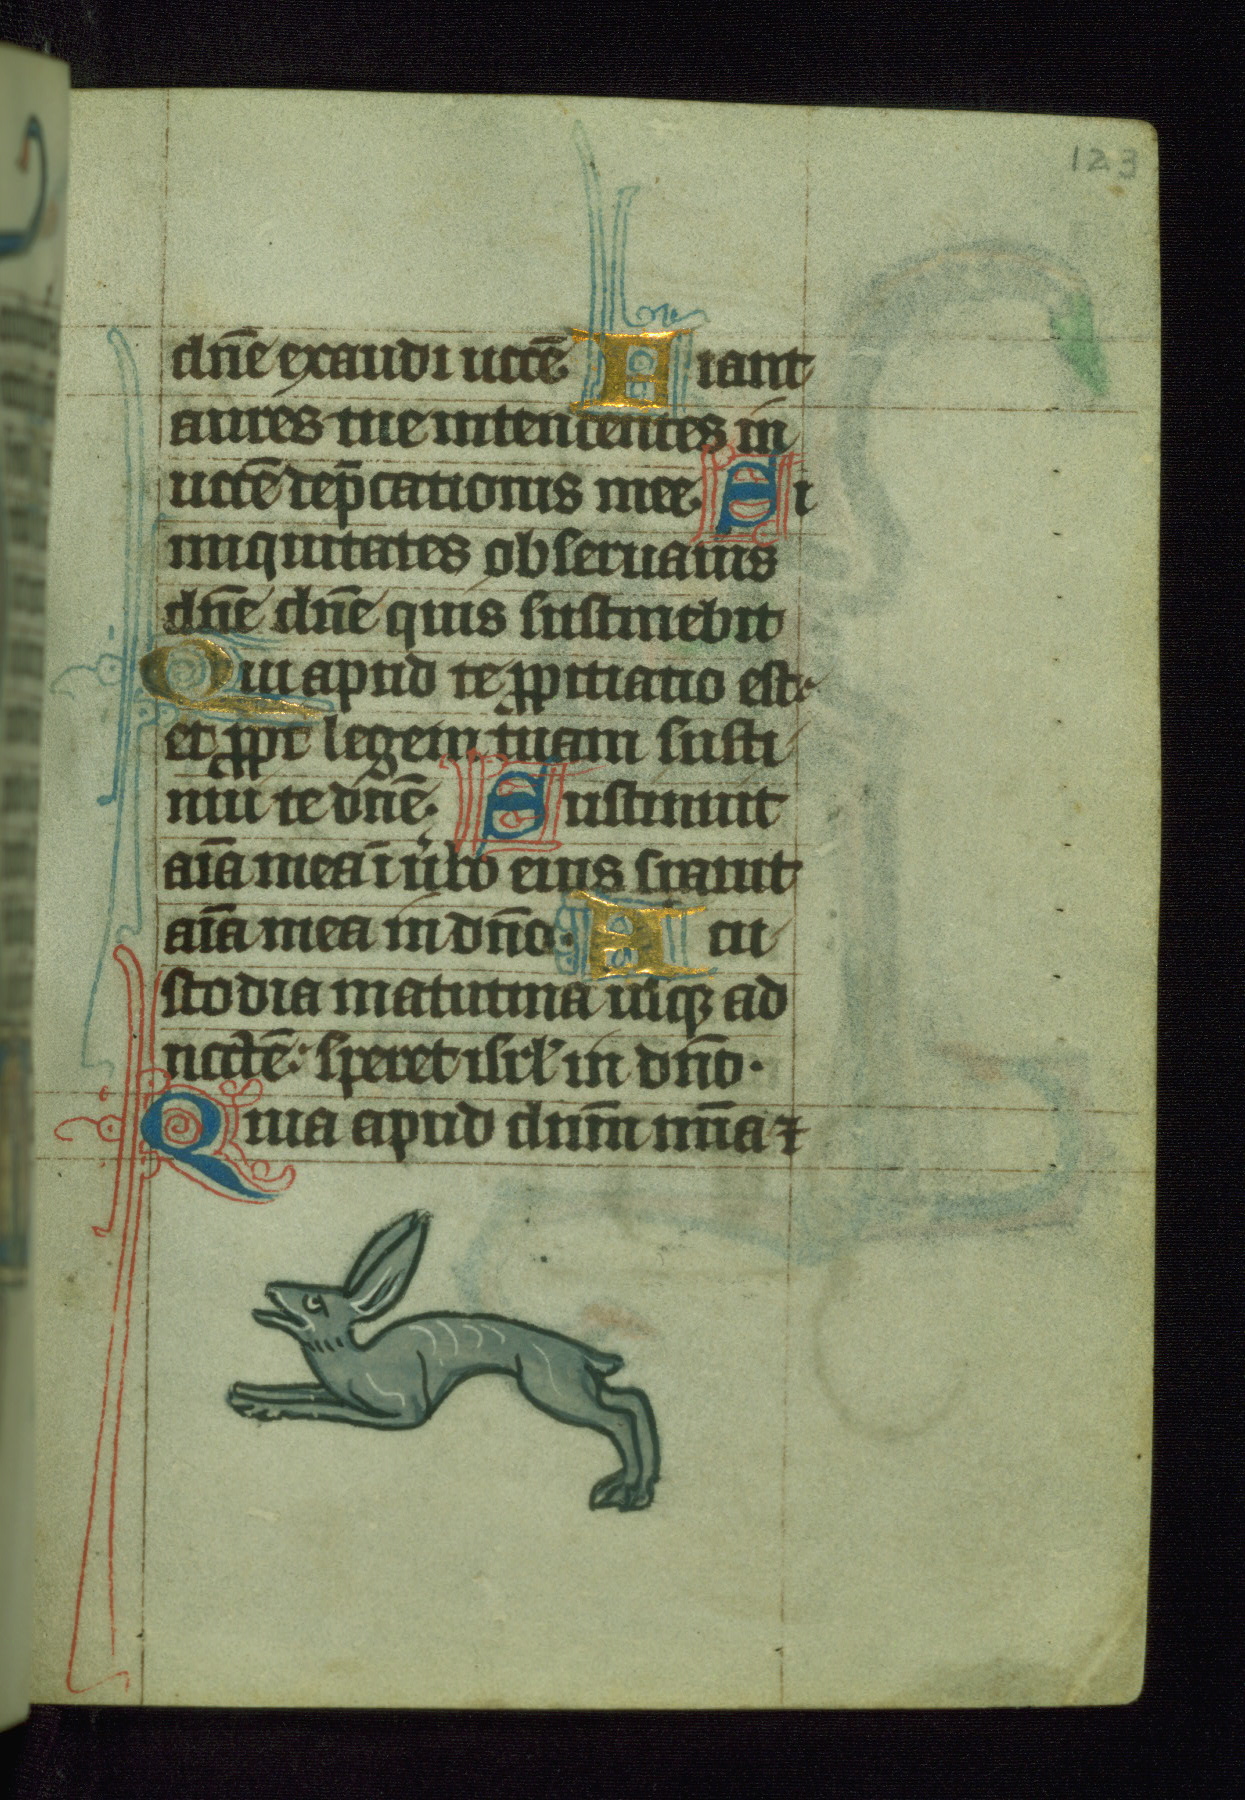 123
dn̄e exaudi uocē Fiant
aures tue intendentes in
uocē dep̄cationis mee. Si
iniquitates obseruauis
dn̄e dn̄e quis sustinebit
Quia apud te ꝓpitiatio est.
et ꝓpt̄ legem tuam susti
nui te dn̄e. Sustinuit
aīa mea ī ūbo eius sꝑauit
aīa mea in dn̄o. A cu
stodia matutina usqꝫ ad
noctē. speret isrl̄ in dn̄o.
Quia apud dnm̄ mīa ⁊